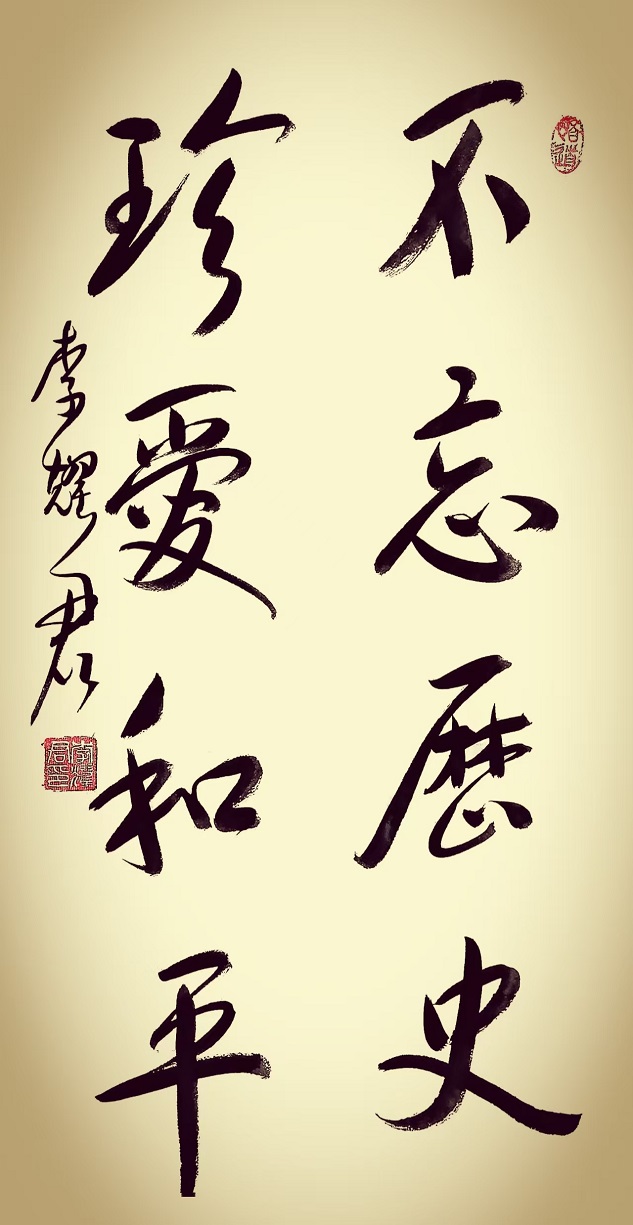 不忘歷史
珍愛和平
李耀君